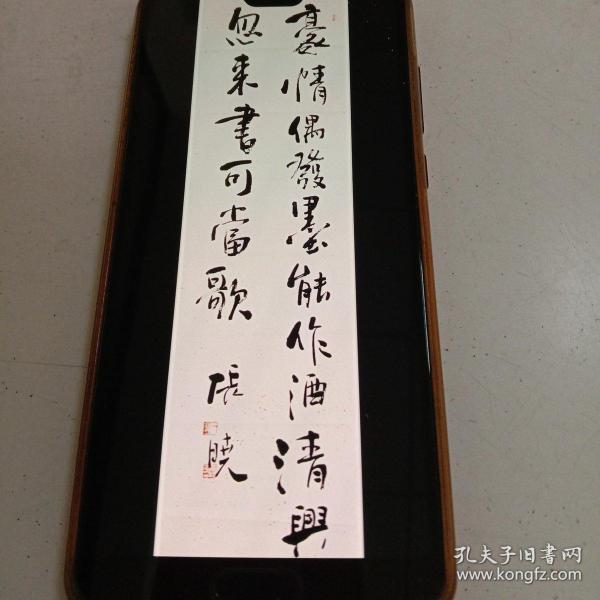 豪情偶發墨能作酒清興
忽来書可當歌
張暁
孔夫子旧書网
www.kongfz.com